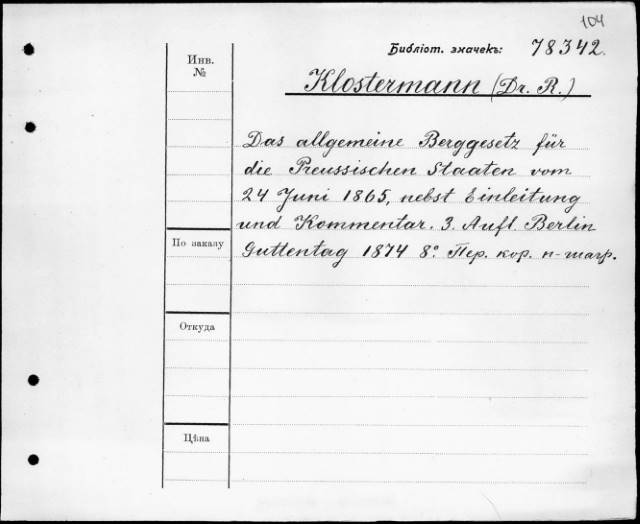 104
Библіот. значекъ: 78342.
Инв.
№
Klostermann (Dr. R.)
Das allgemeine Berggesetz für
die Preussischen Staaten vom
24 Juni 1865, nebst Einleitung
und Kommentar. 3. Aufl. Berlin
По заказу
Guttentag 1874 8º. Пер. кор. п-шагр.
Откуда
Цѣна